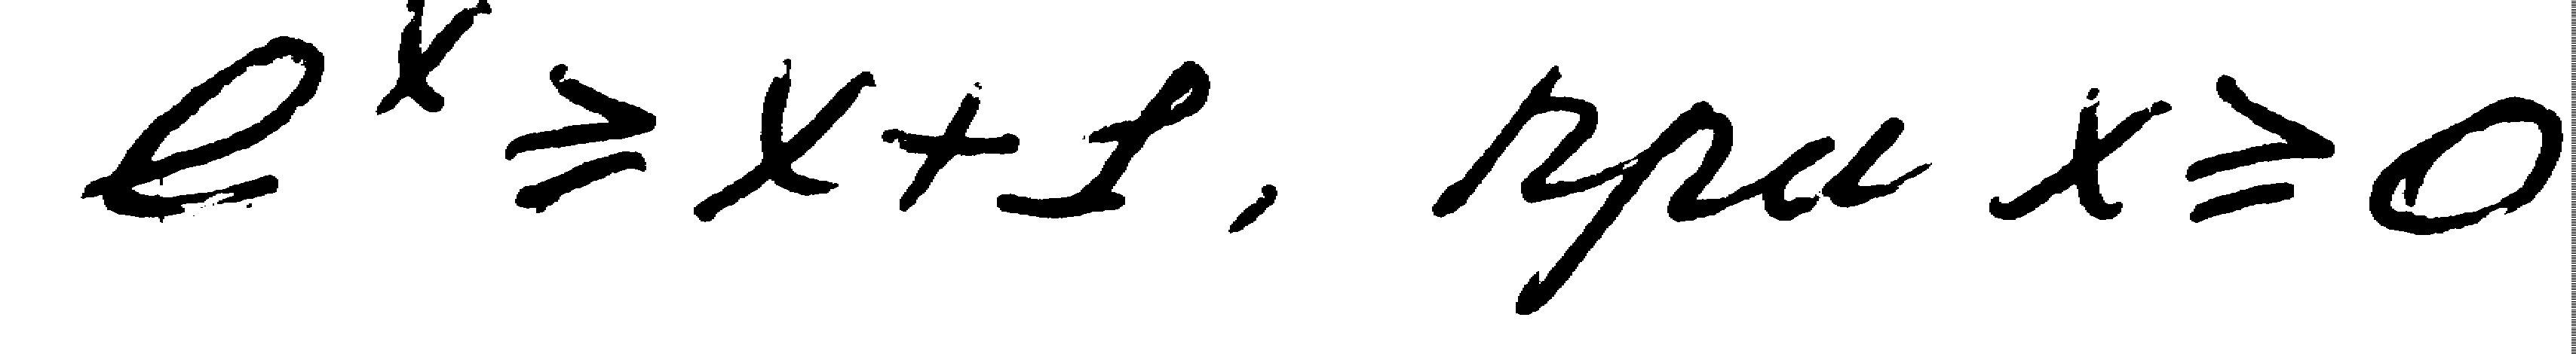 e^x ≥ x+1, при x ≥ 0